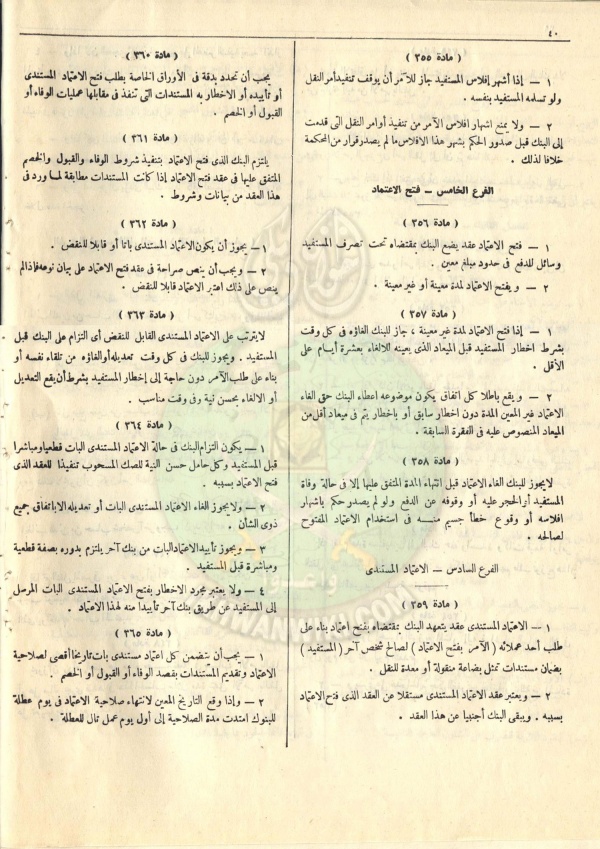 ٤٠
( مادة ٣٥٥ )
١ — إذا أشهر إفلاس المستفيد جاز للآمر أن يوقف تنفيذ أمر النقل
ولو تسلمه المستفيد بنفسه .
٢ — ولا يمنع اشهار افلاس الآمر من تنفيذ أوامر النقل التى قدمت
إلى البنك قبل صدور الحكم بشهر هذا الافلاس ما لم يصدر قرار من المحكمة
خلافا لذلك .
الفرع الخامس — فتح الاعتماد
( مادة ٣٥٦ )
١ — فتح الاعتماد عقد يضع البنك بمقتضاه تحت تصرف المستفيد
وسائل للدفع فى حدود مبلغ معين .
٢ — ويفتح الاعتماد لمدة معينة أو غير معينة .
( مادة ٣٥٧ )
١ — إذا فتح الاعتماد لمدة غير معينة ، جاز للبنك الغاؤه فى كل وقت
بشرط اخطار المستفيد قبل الميعاد الذى يعينه للالغاء بعشرة أيام على
الأقل .
٢ — و يقع باطلا كل اتفاق يكون موضوعه اعطاء البنك حق الغاء
الاعتماد غير المعين المدة دون اخطار سابق أو باخطار يتم فى ميعاد أقل من
الميعاد المنصوص عليه فى الفقرة السابقة .
( مادة ٣٥٨ )
لا يجوز للبنك الغاء الاعتماد قبل انتهاء المدة المتفق عليها إلا فى حالة وفاة
المستفيد أو الحجر عليه أو وقوفه عن الدفع ولو لم يصدر حكم باشهار
افلاسه أو وقوع خطأ جسيم منــه فى استخدام الاعتماد المفتوح
لصالحه .
الفرع السادس — الاعتماد المستندى
( مادة ٣٥٩ )
١ — الاعتماد المستندى عقد يتعهد البنك بمقتضاه بفتح اعتماد بناء على
طلب أحد عملائه ( الآمر بفتح الاعتماد ) لصالح شخص آخر ( المستفيد )
بضمان مستندات تمثل بضاعة منقولة أو معدة للنقل .
٢ — ويعتبر عقد الاعتماد المستندى مستقلا عن العقد الذى فتح الاعتماد
بسببه . ويبقى البنك أجنبيا عن هذا العقد .
( مادة ٣٦٠ )
يجب أن تحدد بدقة فى الأوراق الخاصة بطلب فتح الاعتماد المستندى
أو تأييده أو الاخطار به المستندات التى تنفذ فى مقابلها عمليات الوفاء أو
القبول أو الخصم .
( مادة ٣٦١ )
يلتزم البنك الذى فتح الاعتماد بتنفيذ شروط الوفاء والقبول والخصم
المتفق عليها فى عقد فتح الاعتماد إذا كانت المستندات مطابقة لما ورد فى
هذا العقد من بيانات وشروط .
( مادة ٣٦٢ )
١ — يجوز أن يكون الاعتماد المستندى باتا أو قابلا للنقض .
٢ — ويجب أن ينص صراحة فى عقد فتح الاعتماد على بيان نوعه فاذا لم
ينص على ذلك اعتبر الاعتماد قابلا للنقض .
( مادة ٣٦٣ )
لا يترتب على الاعتماد المستندى القابل للنقض أى التزام على البنك قبل
المستفيد . ويجوز للبنك فى كل وقت تعديله أو الغاؤه من تلقاء نفسه أو
بناء على طلب الآمر دون حاجة إلى إخطار المستفيد بشرط أن يقع التعديل
أو الالغاء بحسن نية وفى وقت مناسب .
( مادة ٣٦٤ )
١ — يكون التزام البنك فى حالة الاعتماد المستندى البات قطعيا ومباشرا
قبل المستفيد وكل حامل حسن النية للصك المسحوب تنفيذا للعقد الذى
فتح الاعتماد بسببه .
٢ — ولا يجوز الغاء الاعتماد المستندى البات أو تعديله الا باتفاق جميع
ذوى الشأن .
٣ — ويجوز تأييد الاعتماد البات من بنك آخر يلتزم بدوره بصفة قطعية
ومباشرة قبل المستفيد .
٤ — ولا يعتبر مجرد الاخطار بفتح الاعتماد المستندى البات المرسل
إلى المستفيد عن طريق بنك آخر تأييدا منه لهذا الاعتماد .
( مادة ٣٦٥ )
١ — يجب أن يتضمن كل اعتماد مستندى بات تاريخا أقصى لصلاحية
الاعتماد وتقديم المستندات بقصد الوفاء أو القبول أو الخصم .
٢ — وإذا وقع التاريخ المعين لانتهاء صلاحية الاعتماد فى يوم عطلة
للبنوك امتدت مدة الصلاحية إلى أول يوم عمل تال للعطلة .